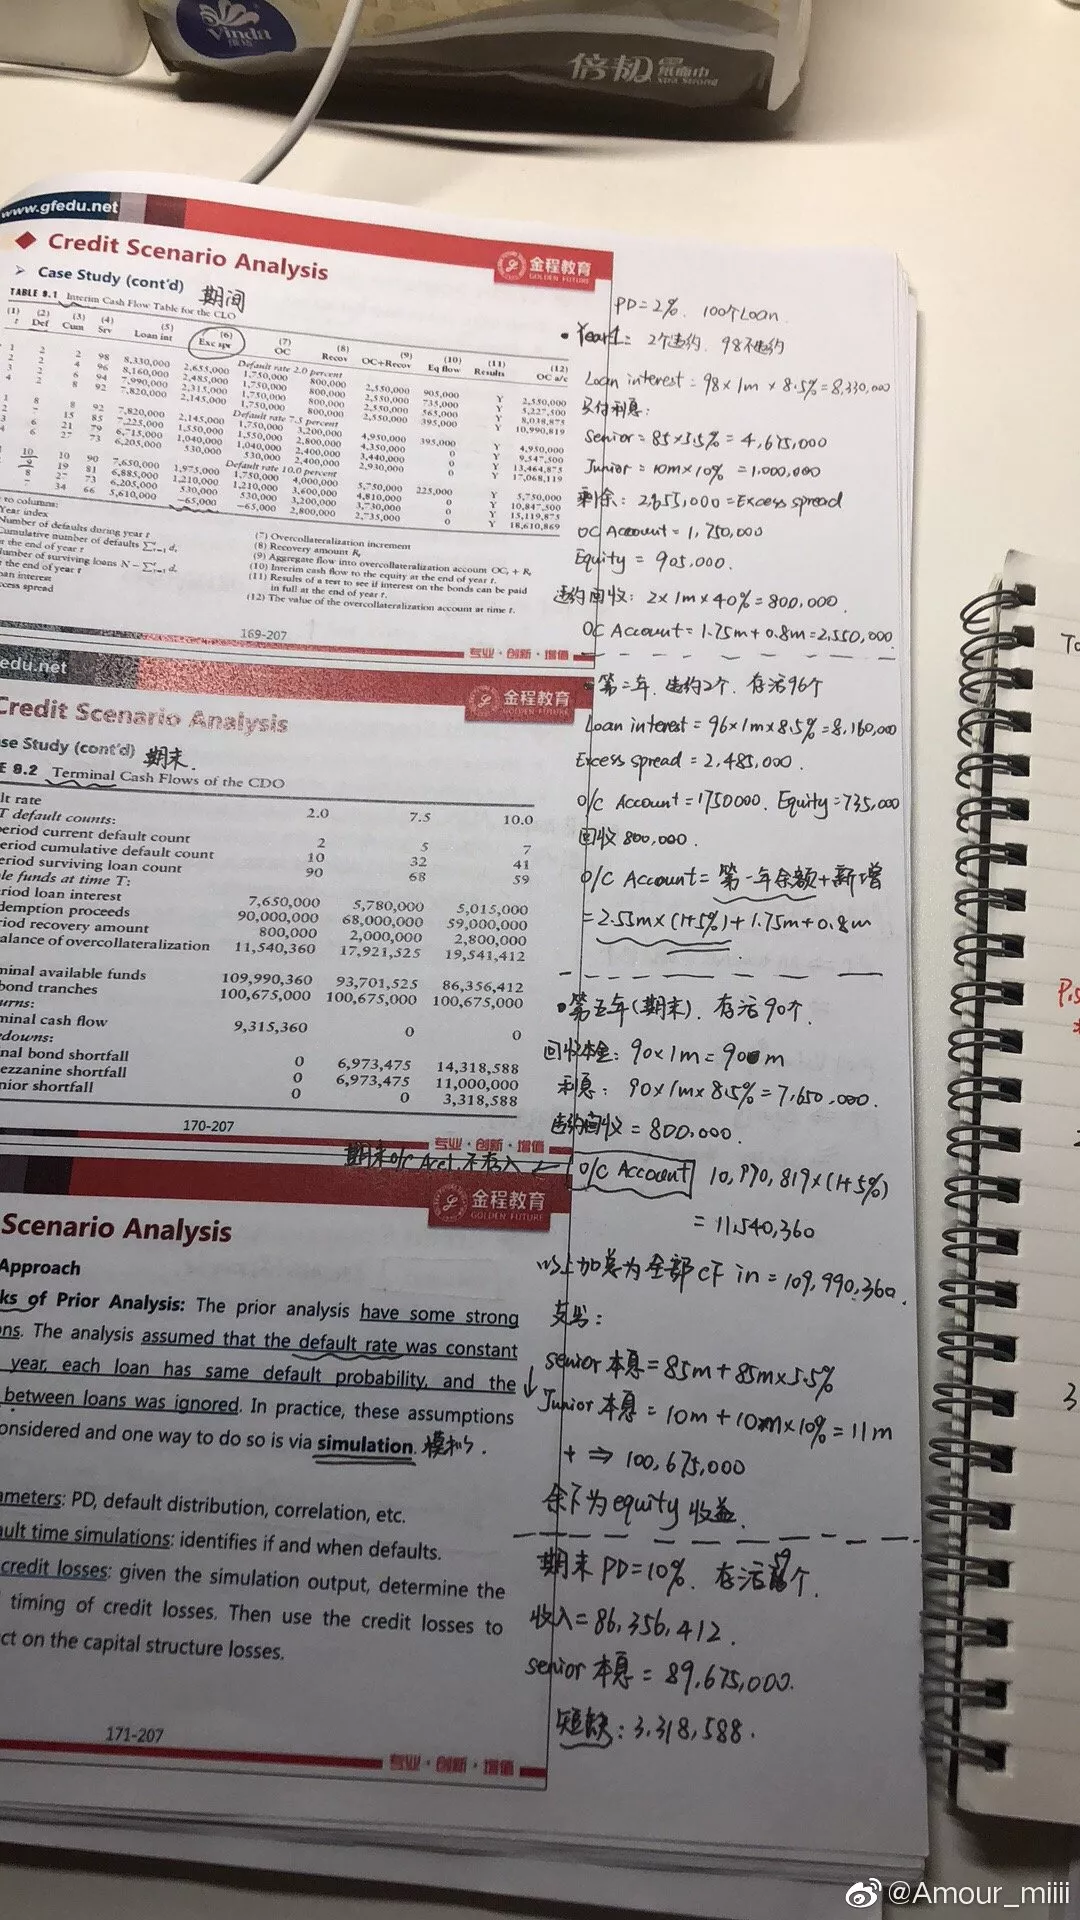 Vinda
倍韧
www.gfedu.net
Credit Scenario Analysis
金程教育
GOLDEN FUTURE
Case Study (cont'd) 期间
TABLE 9.1 Interim Cash Flow Table for the CLO
(1) (2) (3) (4) (5) (6) (7) (8) (9) (10) (11) (12)
t Def Cum Srv Loan int Exc spr OC Recov OC+Recov Eq flow Results OC a/c
Default rate 2.0 percent
1 2 2 98 8,330,000 2,655,000 1,750,000 800,000 2,550,000 905,000 Y 2,550,000
2 2 4 96 8,160,000 2,485,000 1,750,000 800,000 2,550,000 735,000 Y 5,227,500
3 2 6 94 7,990,000 2,315,000 1,750,000 800,000 2,550,000 565,000 Y 8,038,875
4 2 8 92 7,820,000 2,145,000 1,750,000 800,000 2,550,000 395,000 Y 10,990,819
Default rate 7.5 percent
1 8 8 92 7,820,000 2,145,000 1,750,000 3,200,000 4,950,000 395,000 Y 4,950,000
7 15 85 7,225,000 1,550,000 1,550,000 2,800,000 4,350,000 0 Y 9,547,500
6 21 79 6,715,000 1,040,000 1,040,000 2,400,000 3,440,000 0 Y 13,464,875
6 27 73 6,205,000 530,000 530,000 2,400,000 2,930,000 0 Y 17,068,119
Default rate 10.0 percent
10 10 90 7,650,000 1,975,000 1,750,000 4,000,000 5,750,000 225,000 Y 5,750,000
9 19 81 6,885,000 1,210,000 1,210,000 3,600,000 4,810,000 0 Y 10,847,500
8 27 73 6,205,000 530,000 530,000 3,200,000 3,730,000 0 Y 15,119,875
7 34 66 5,610,000 -65,000 -65,000 2,800,000 2,735,000 0 Y 18,610,869
to columns:
Year index
Number of defaults during year t
Cumulative number of defaults
the end of year t
umber of surviving loans
the end of year t
oan interest
xcess spread
(7) Overcollateralization increment
(8) Recovery amount R,
(9) Aggregate flow into overcollateralization account OC, + R,
(10) Interim cash flow to the equity at the end of year t.
(11) Results of a test to see if interest on the bonds can be paid
in full at the end of year t.
(12) The value of the overcollateralization account at time t.
169-207
专业·创新·增值
PD=2%. 100个Loan
Year1: 2个违约. 98不违约
Loan interest = 98×1m×8.5%=8,330,000
支付利息:
Senior = 85×5.5% = 4,675,000
Junior = 10m×10% = 1,000,000
剩余: 2,655,000 = Excess spread
OC Account = 1,750,000
Equity = 905,000.
违约回收: 2×1m×40%=800,000.
OC Account = 1.75m+0.8m=2,550,000
edu.net
Credit Scenario Analysis
金程教育
GOLDEN FUTURE
se Study (cont'd) 期末.
E 9.2 Terminal Cash Flows of the CDO
lt rate 2.0 7.5 10.0
T default counts:
eriod current default count 2 5 7
eriod cumulative default count 10 32 41
eriod surviving loan count 90 68 59
le funds at time T:
riod loan interest 7,650,000 5,780,000 5,015,000
demption proceeds 90,000,000 68,000,000 59,000,000
riod recovery amount 800,000 2,000,000 2,800,000
alance of overcollateralization 11,540,360 17,921,525 19,541,412
minal available funds 109,990,360 93,701,525 86,356,412
bond tranches 100,675,000 100,675,000 100,675,000
urns:
minal cash flow 9,315,360 0 0
edowns:
nal bond shortfall 0 6,973,475 14,318,588
ezzanine shortfall 0 6,973,475 11,000,000
nior shortfall 0 0 3,318,588
170-207
专业·创新·增值
第二年. 违约2个. 存活96个
Loan interest = 96×1m×8.5%=8,160,000
Excess spread = 2,485,000.
O/C Account=1750000. Equity=735,000
回收 800,000.
O/C Account = 第一年余额+新增
= 2.55m×(1+5%)+1.75m+0.8m
第五年(期末). 存活90个.
回收本金: 90×1m = 90m
利息: 90×1m×8.5%=7,650,000.
违约回收 = 800,000.
期末O/C Acct. 不存入 ←
O/C Account 10,990,819×(1+5%)
= 11,540,360
以上加总为全部CF in = 109,990,360.
支出:
senior 本息 = 85m+85m×5.5%
Junior 本息 = 10m+10m×10%=11m
+ ⇒ 100,675,000
余下为equity 收益.
期末 PD=10%. 存活59个.
收入=86,356,412.
senior 本息 = 89,675,000.
短缺: 3,318,588.
金程教育
GOLDEN FUTURE
Scenario Analysis
Approach
ks of Prior Analysis: The prior analysis have some strong
ons. The analysis assumed that the default rate was constant
year, each loan has same default probability, and the
between loans was ignored. In practice, these assumptions
onsidered and one way to do so is via simulation. 模拟.
ameters: PD, default distribution, correlation, etc.
ult time simulations: identifies if and when defaults.
credit losses: given the simulation output, determine the
timing of credit losses. Then use the credit losses to
ct on the capital structure losses.
171-207
专业·创新·增值
3
@Amour_miiii